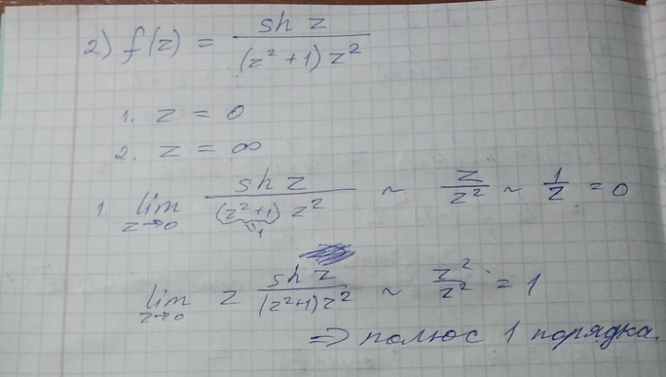 2) f(z) = sh z / (z² + 1) z²
1. z = 0
2. z = ∞
1. lim z→0 sh z / (z²+1) z² ~ z / z² ~ 1 / z = 0
lim z→0 z sh z / (z²+1) z² ~ z² / z² = 1
⇒ полюс 1 порядка.